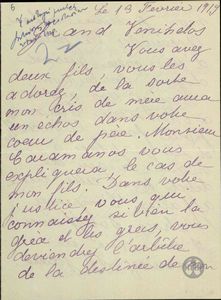 6
Le 13 Février 1919
Grand Venizelos
Vous avez
deux fils, vous les
adorez, de la sorte
mon cris de mère aura
un echos dans votre
coeur de père. Monsieur
vous
expliquera le cas de
mon fils. Dans votre
justice, vous, qui
connaissez si bien la
Grèce et les grecs, vous
deviendrez l'arbitre
de la destinée de mon